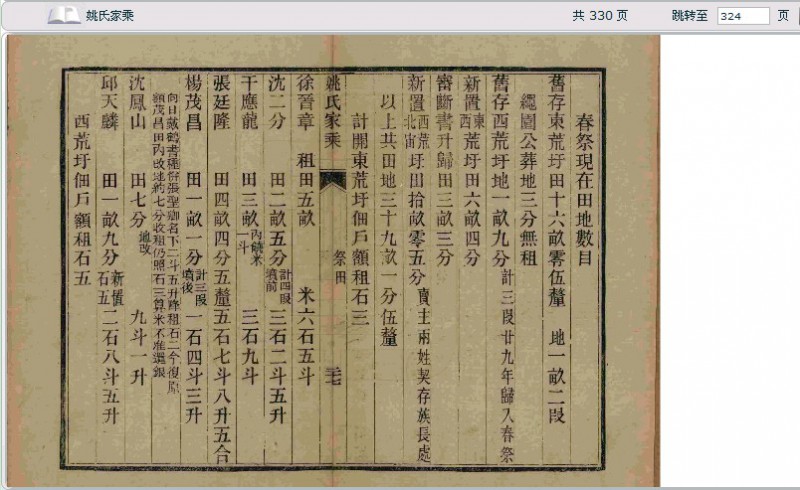 姚氏家乘
共 330 页
跳转至 324 页
春祭現在田地數目
舊存東荒圩田十六畝零伍釐 地一畝二段
繩園公葬地三分無租
舊存西荒圩地一畝九分 計三段廿九年歸入春祭
新置東西荒圩田六畝四分
審斷書升歸田三畝三分
新置西荒北宙圩田拾畝零五分 賣主兩姓契存族長處
以上共田地三十九畝一分伍釐
計開東荒圩佃戶額租石三
姚氏家乘 祭田 三七
徐晉章 租田五畝 米六石五斗
沈二分 田二畝五分 計四段墳前 三石二斗五升
干應龍 田三畝 內饒米一斗 三石九斗
張廷隆 田四畝四分五釐 五石七斗八升五合
楊茂昌 田一畝一分 計三段墳後 一石四斗三升
向日戴鶴者雍份張聖卿名下二斗五升降租石二今復原
額茂昌田內改地約七分收租仍照石三算米不准還銀
沈鳳山 田七分 地改 九斗一升
邱天麟 田一畝九分 新價石五 二石八斗五升
酉荒圩佃戶額租石五